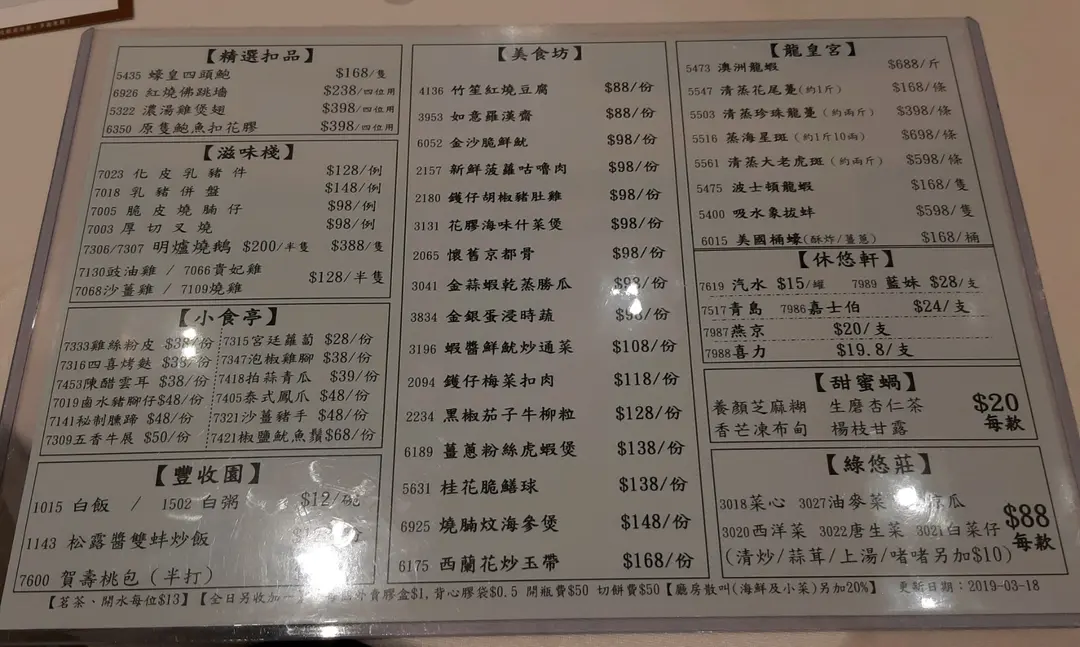 【精選扣品】
5435 蠔皇四頭鮑 $168/隻
6926 紅燒佛跳墻 $238/四位用
5322 濃湯雞煲翅 $398/四位用
6350 原隻鮑魚扣花膠 $398/四位用
【滋味棧】
7023 化皮乳豬件 $128/例
7018 乳豬併盤 $148/例
7005 脆皮燒腩仔 $98/例
7003 厚切叉燒 $98/例
7306/7307 明爐燒鵝 $200/半隻 $388/隻
7130豉油雞 / 7066貴妃雞
7068沙薑雞 / 7109燒雞 $128/半隻
【小食亭】
7333雞絲粉皮 $38/份 7315宮廷蘿蔔 $28/份
7316四喜烤麩 $38/份 7347泡椒雞腳 $38/份
7453陳醋雲耳 $38/份 7418拍蒜青瓜 $39/份
7019鹵水豬腳仔$48/份 7405泰式鳳爪 $48/份
7141秘制燻蹄 $48/份 7321沙薑豬手 $48/份
7309五香牛展 $50/份 7421椒鹽魷魚鬚$68/份
【豐收園】
1015 白飯 / 1502 白粥 $12/碗
1143 松露醬雙蚌炒飯
7600 賀壽桃包(半打)
【美食坊】
4136 竹笙紅燒豆腐 $88/份
3953 如意羅漢齋 $88/份
6052 金沙脆鮮魷 $98/份
2157 新鮮菠蘿咕嚕肉 $98/份
2180 鑊仔胡椒豬肚雞 $98/份
3131 花膠海味什菜煲 $98/份
2065 懷舊京都骨 $98/份
3041 金蒜蝦乾蒸勝瓜 $98/份
3834 金銀蛋浸時蔬 $98/份
3196 蝦醬鮮魷炒通菜 $108/份
2094 鑊仔梅菜扣肉 $118/份
2234 黑椒茄子牛柳粒 $128/份
6189 薑蔥粉絲虎蝦煲 $138/份
5631 桂花脆鱔球 $138/份
6925 燒腩炆海參煲 $148/份
6175 西蘭花炒玉帶 $168/份
【龍皇宮】
5473 澳洲龍蝦 $688/斤
5547 清蒸花尾躉(約1斤) $168/條
5503 清蒸珍珠龍躉(約兩斤) $398/條
5516 蒸海星斑(約1斤10兩) $698/條
5561 清蒸大老虎斑(約兩斤) $598/條
5475 波士頓龍蝦 $168/隻
5400 吸水象拔蚌 $598/隻
6015 美國桶蠔(酥炸/薑蔥) $168/桶
【休悠軒】
7619 汽水 $15/罐 7989 藍妹 $28/支
7517青島 7986嘉士伯 $24/支
7987燕京 $20/支
7988喜力 $19.8/支
【甜蜜蝸】
養顏芝麻糊 生磨杏仁茶
香芒凍布甸 楊枝甘露
$20
每款
【綠悠莊】
3018菜心 3027油麥菜 涼瓜
3020西洋菜 3022唐生菜 3021白菜仔
(清炒/蒜茸/上湯/啫啫另加$10)
$88
每款
【茗茶、開水每位$13】【全日另收加一 外賣膠盒$1,背心膠袋$0.5 開瓶費$50 切餅費$50【廳房散叫(海鮮及小菜)另加20%】 更新日期：2019-03-18